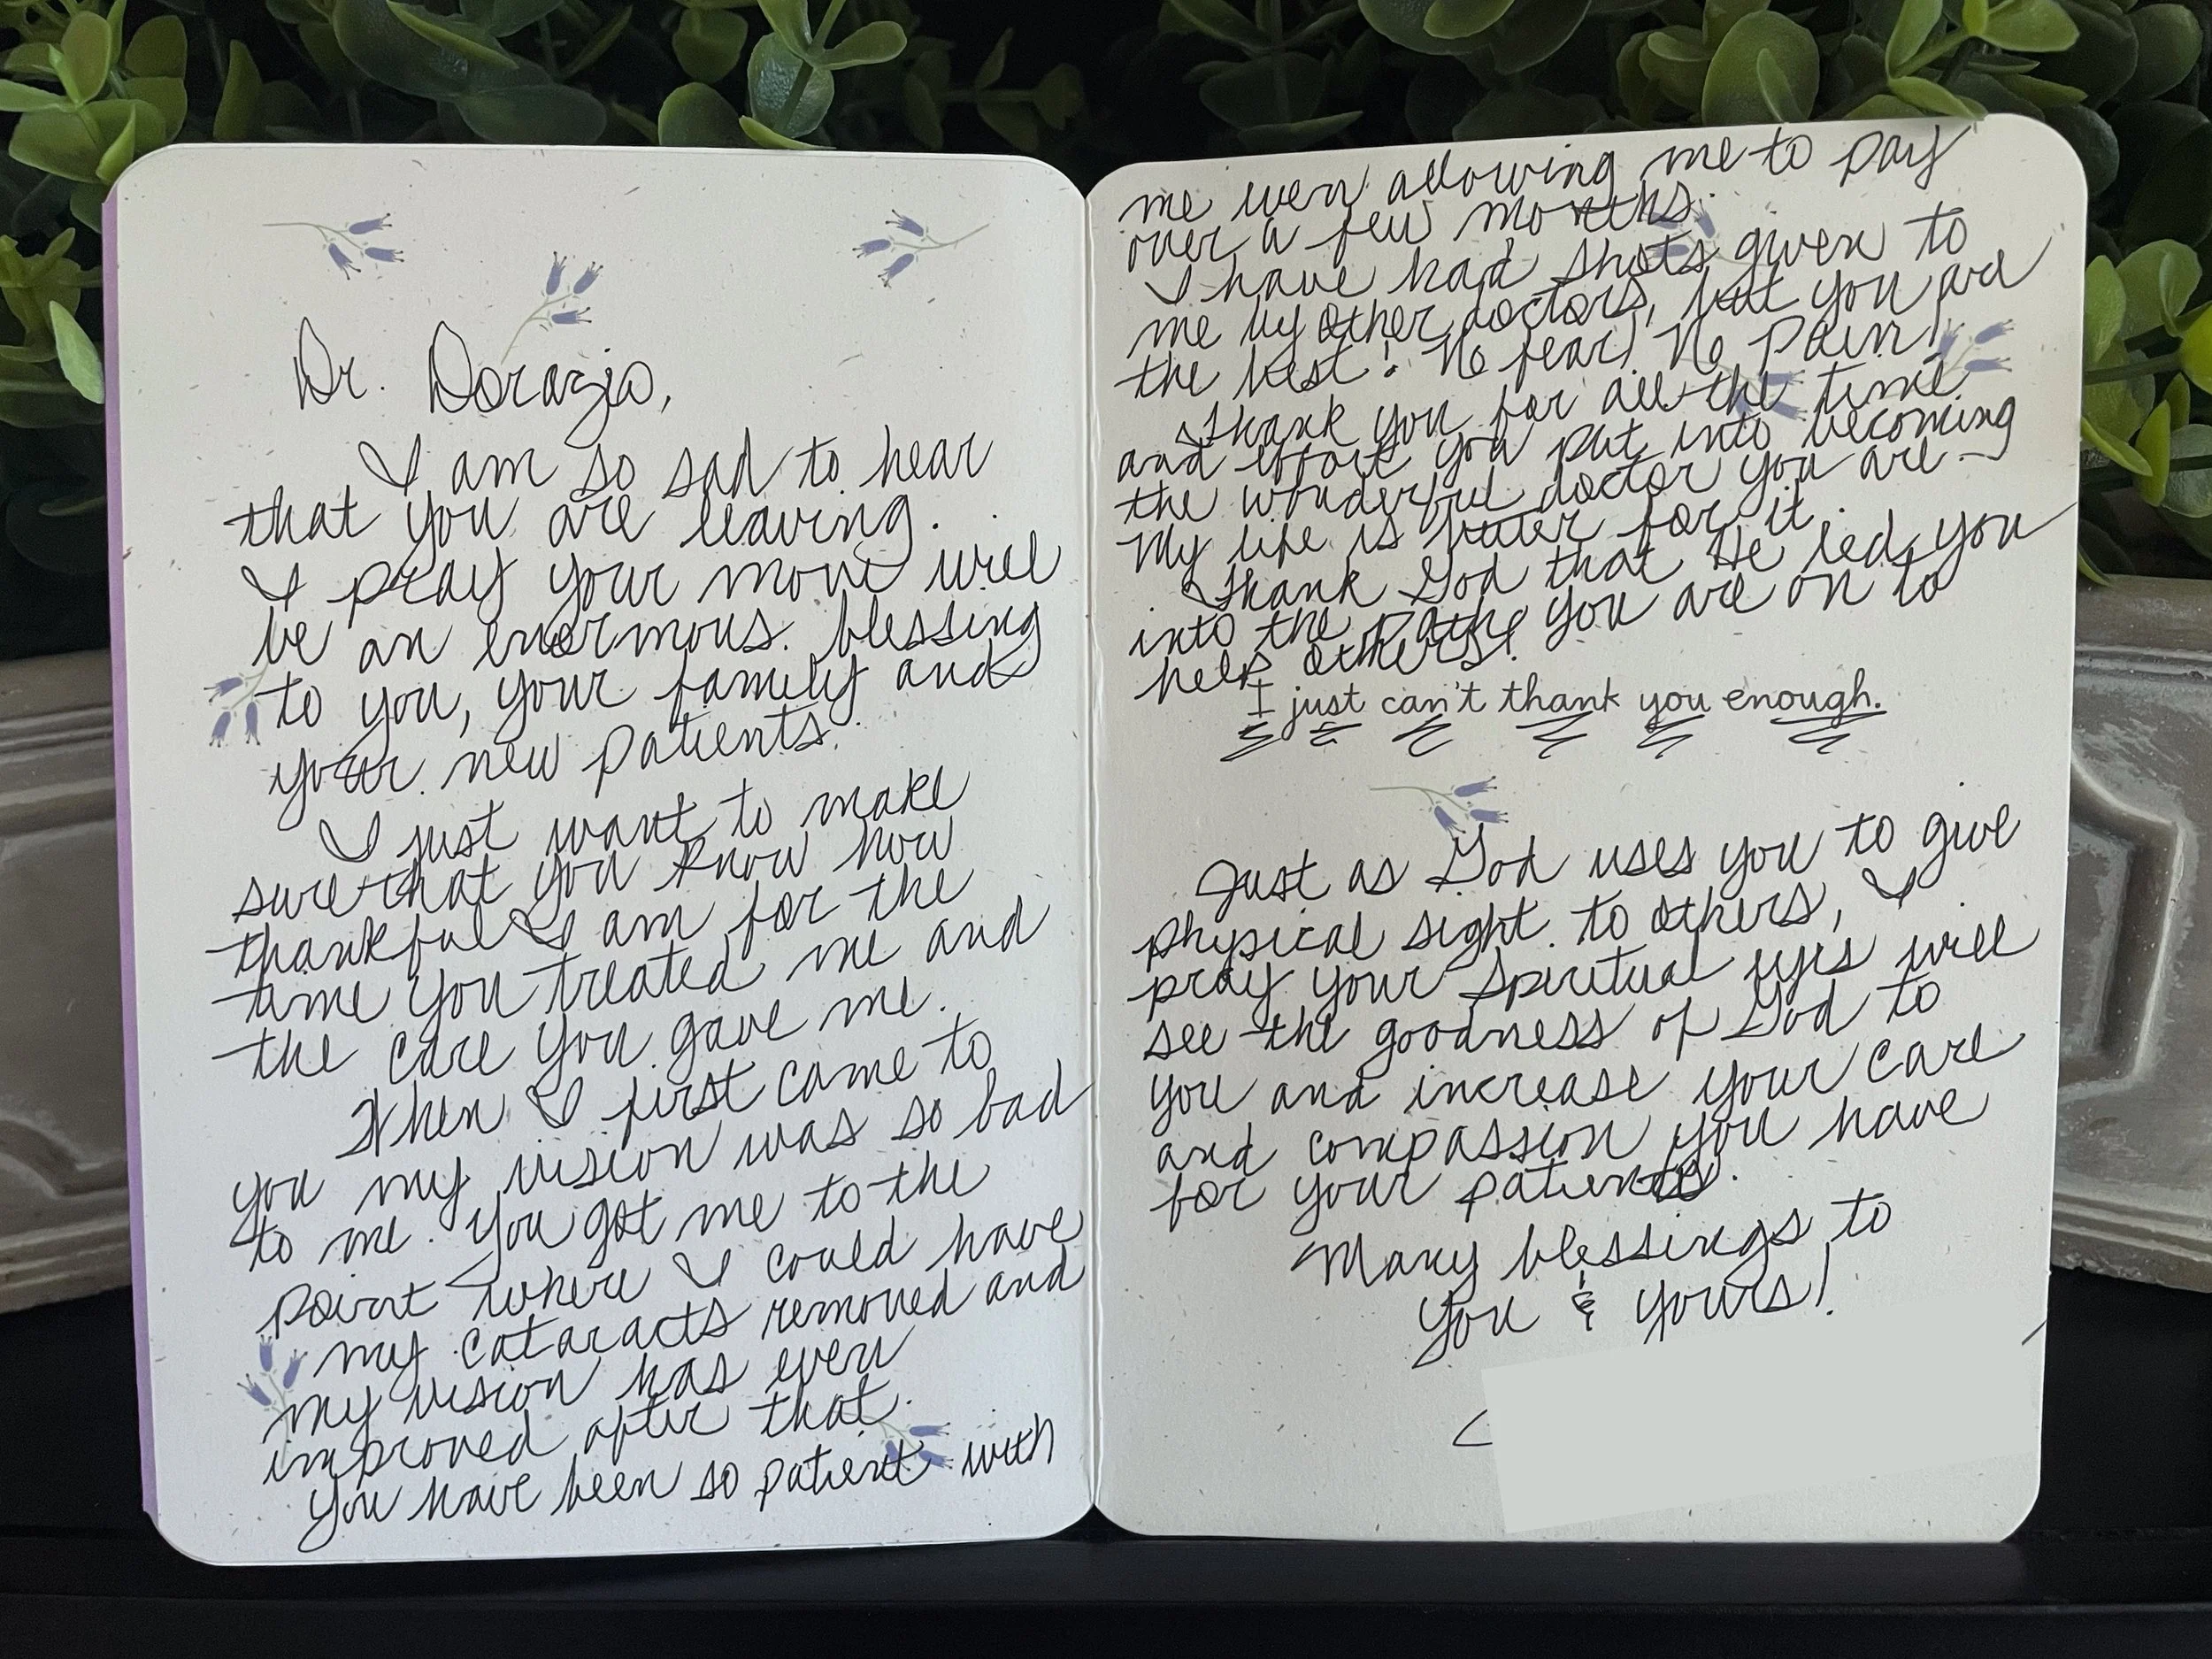 Dr. Dorazio,
I am so sad to hear
that you are leaving.
I pray your move will
be an enormous blessing
to you, your family and
your new patients.
I just want to make
sure that you know how
thankful I am for the
time you treated me and
the care you gave me.
When I first came to
you my vision was so bad
to me. You got me to the
point where I could have
my cataracts removed and
my vision has even
improved after that.
You have been so patient with
me even allowing me to pay
over a few months.
I have had shots given to
me by other doctors, but you are
the best! No fear! No Pain!
Thank you for all the time
and effort you put into becoming
the wonderful doctor you are -
My life is better for it.
Thank God that He led you
into the path you are on to
help others!
I just can't thank you enough.
Just as God uses you to give
physical sight to others, I
pray your spiritual eyes will
see the goodness of God to
you and increase your care
and compassion you have
for your patients.
Many blessings to
you & yours!